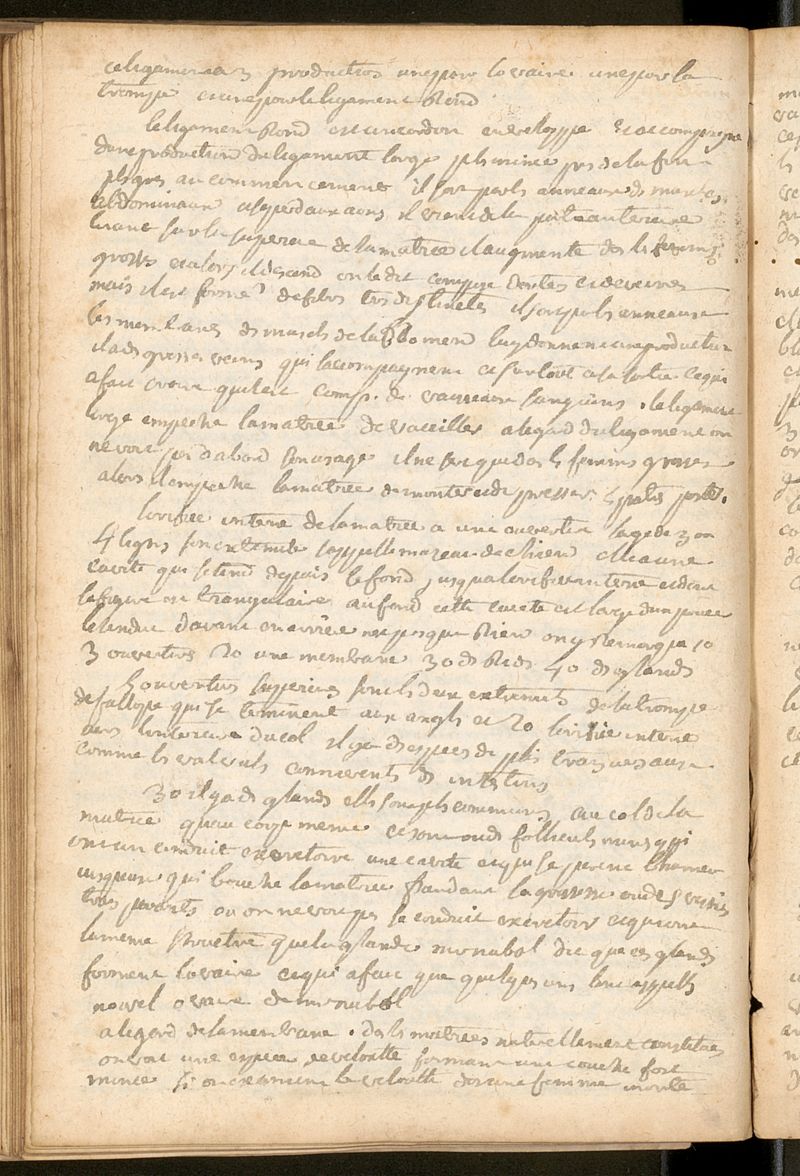 ce ligament a 3 productions une pour lovaire une pour la
trompe et une pour le ligament Rond
le ligament Rond est un cordon enveloppé et accompagné
dune production du ligament large plus mince pres de la fin
plus gros au commencement il sort par les anneaux des muscles
abdominaux il vient de la partie anterieure
de la matrice il augmente dans les femmes
grosses et alors il descend on le dit composé darteres et de veines
mais il est formé de fibres tres distinctes il sort par les anneaux
les membranes des muscles de labdomen luy donnent une production
il a de grosses veines qui laccompagnent et surtout a sa sortie ce qui
a fait croire quil est comp. de vaisseaux sanguins . le ligament
large empeche la matrice de vaciller a legard du ligament on
ne voit pas dabord son usage il ne sert que dans les femmes grosses
alors il empeche la matrice de monter et de presser les parties
lorifice interne de la matrice a une ouverture large de 3 ou
4 lignes son extremité sappelle museau de chien elle a une
cavité qui setend depuis le fond jusqua lorifice interne et dont
la figure est triangulaire au fond cette cavité est large dun pouce
letendue davant en arriere nest presque Rien on y remarque 1o
3 ouvertures 2o une membrane 3o des Rides 4o des glands
3 ouvertures superieures sont les deux extremités de la trompe
de fallope qui se terminent aux angles et 2o lorifice interne
vers linterieur du col il y a des especes de plis
comme les valvules connivents des intestins
3o il y a des glands elles sont plus communes au col de la
matrice quau corps meme ce sont des follicules qui
ont un conduit excretoire une cavité
visqueuse qui bouche la matrice pendant la grossesse
ou on ne voit pas le conduit excretoire
la meme structure que la glande nabot dit que ces glands
forment lovaire ce qui a fait que quelques uns lont appellé
novel ovaire de nabot
a legard de la membrane . dans les matrices naturellement constituées
on voit une espece de velouté formant une couche fort
mince si on examine le velouté dans une femme morte